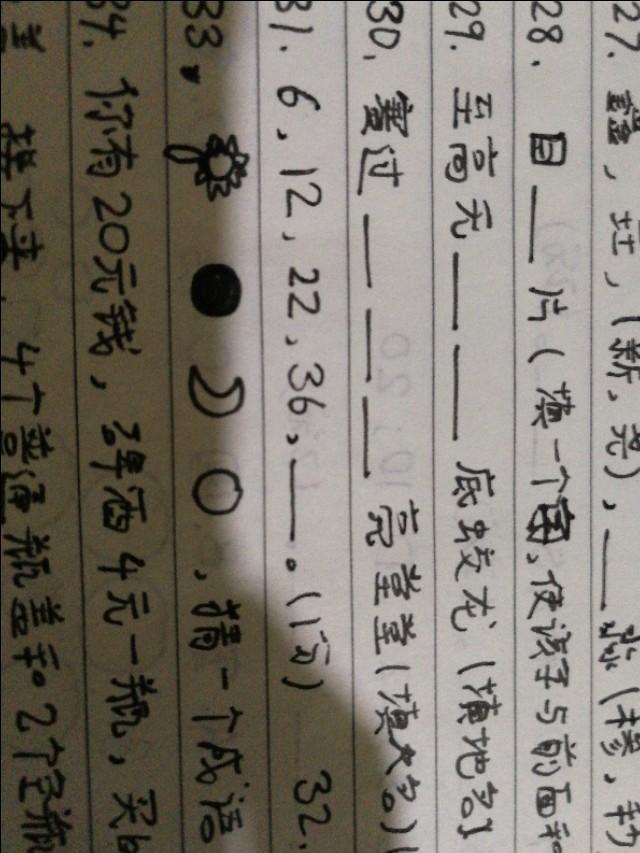 27. 鑫,㺵,(新,尧),___淼(掺,
28. 目__片(填一个字,使该字与前面和
29. 至高无____底蛟龙(填地名)
30. 赛过______亮堂堂(填人名)
31. 6,12,22,36,__。(1分) 32.
33. ,猜一个成语
34. 你有20元钱,啤酒4元一瓶,买
接下来,4个普通瓶盖和2个空瓶